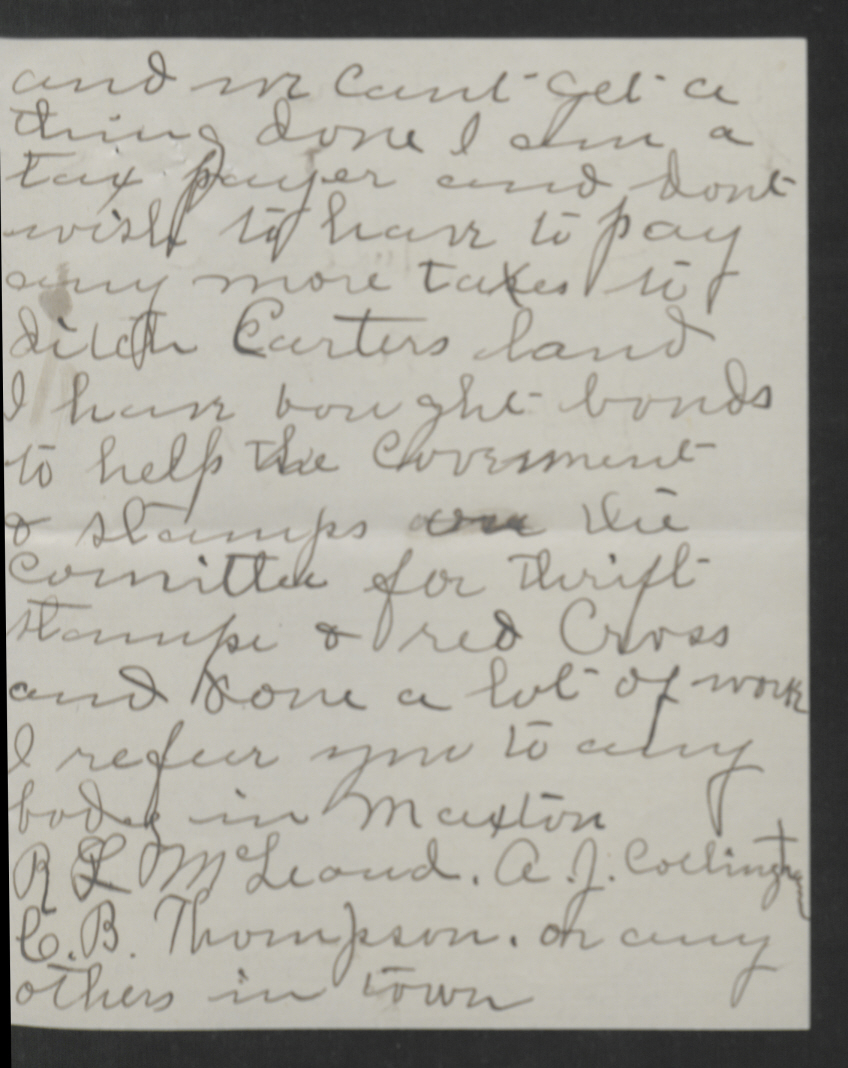 and we cant get a
thing done I am a
tax payer and dont
wish to have to pay
any more taxes to
ditch Carters land
I have bought bonds
to help the Goverment
& stamps on the
Comittee for thrift
stamps & red Cross
and done a lot of work
I refeer you to any
body in Maxton
R L McLeoud. A. J.
C. B. Thompson. or any
others in town